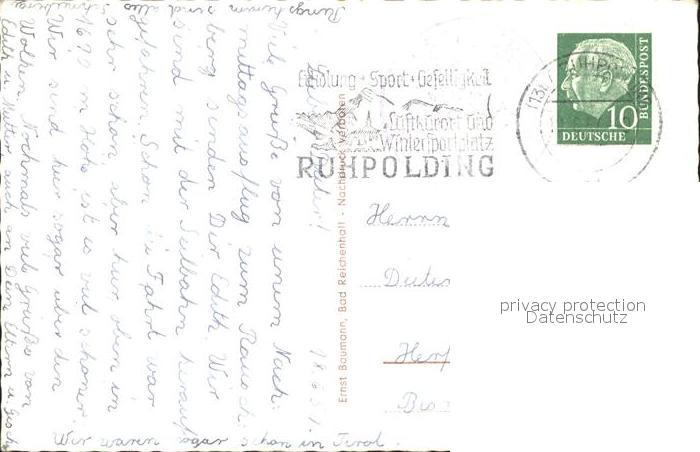 Erholung · Sport · Geselligkeit
Luftkurort und
Wintersportplatz
RUHPOLDING
10
DEUTSCHE
BUNDESPOST
Viele Grüße von unsem Nach-
mittagsausflug zum Rausch-
berg senden Dir Edith. Wir
sind mit der Seilbahn herauf
gefahren. Schon die Fahrt war
sehr schön, aber hier oben in
1699 m Höhe ist es viel schöner.
Wir sind hier sogar über den
Wolken. Nochmals viele Grüße von
Edith u. Mutter auch an Dein Eltern u. Gesch
Wir waren sogar schon in Tirol.
Ernst Baumann, Bad Reichenhall - Nachdruck verboten
Herrn
Dieter
privacy protection
Datenschutz